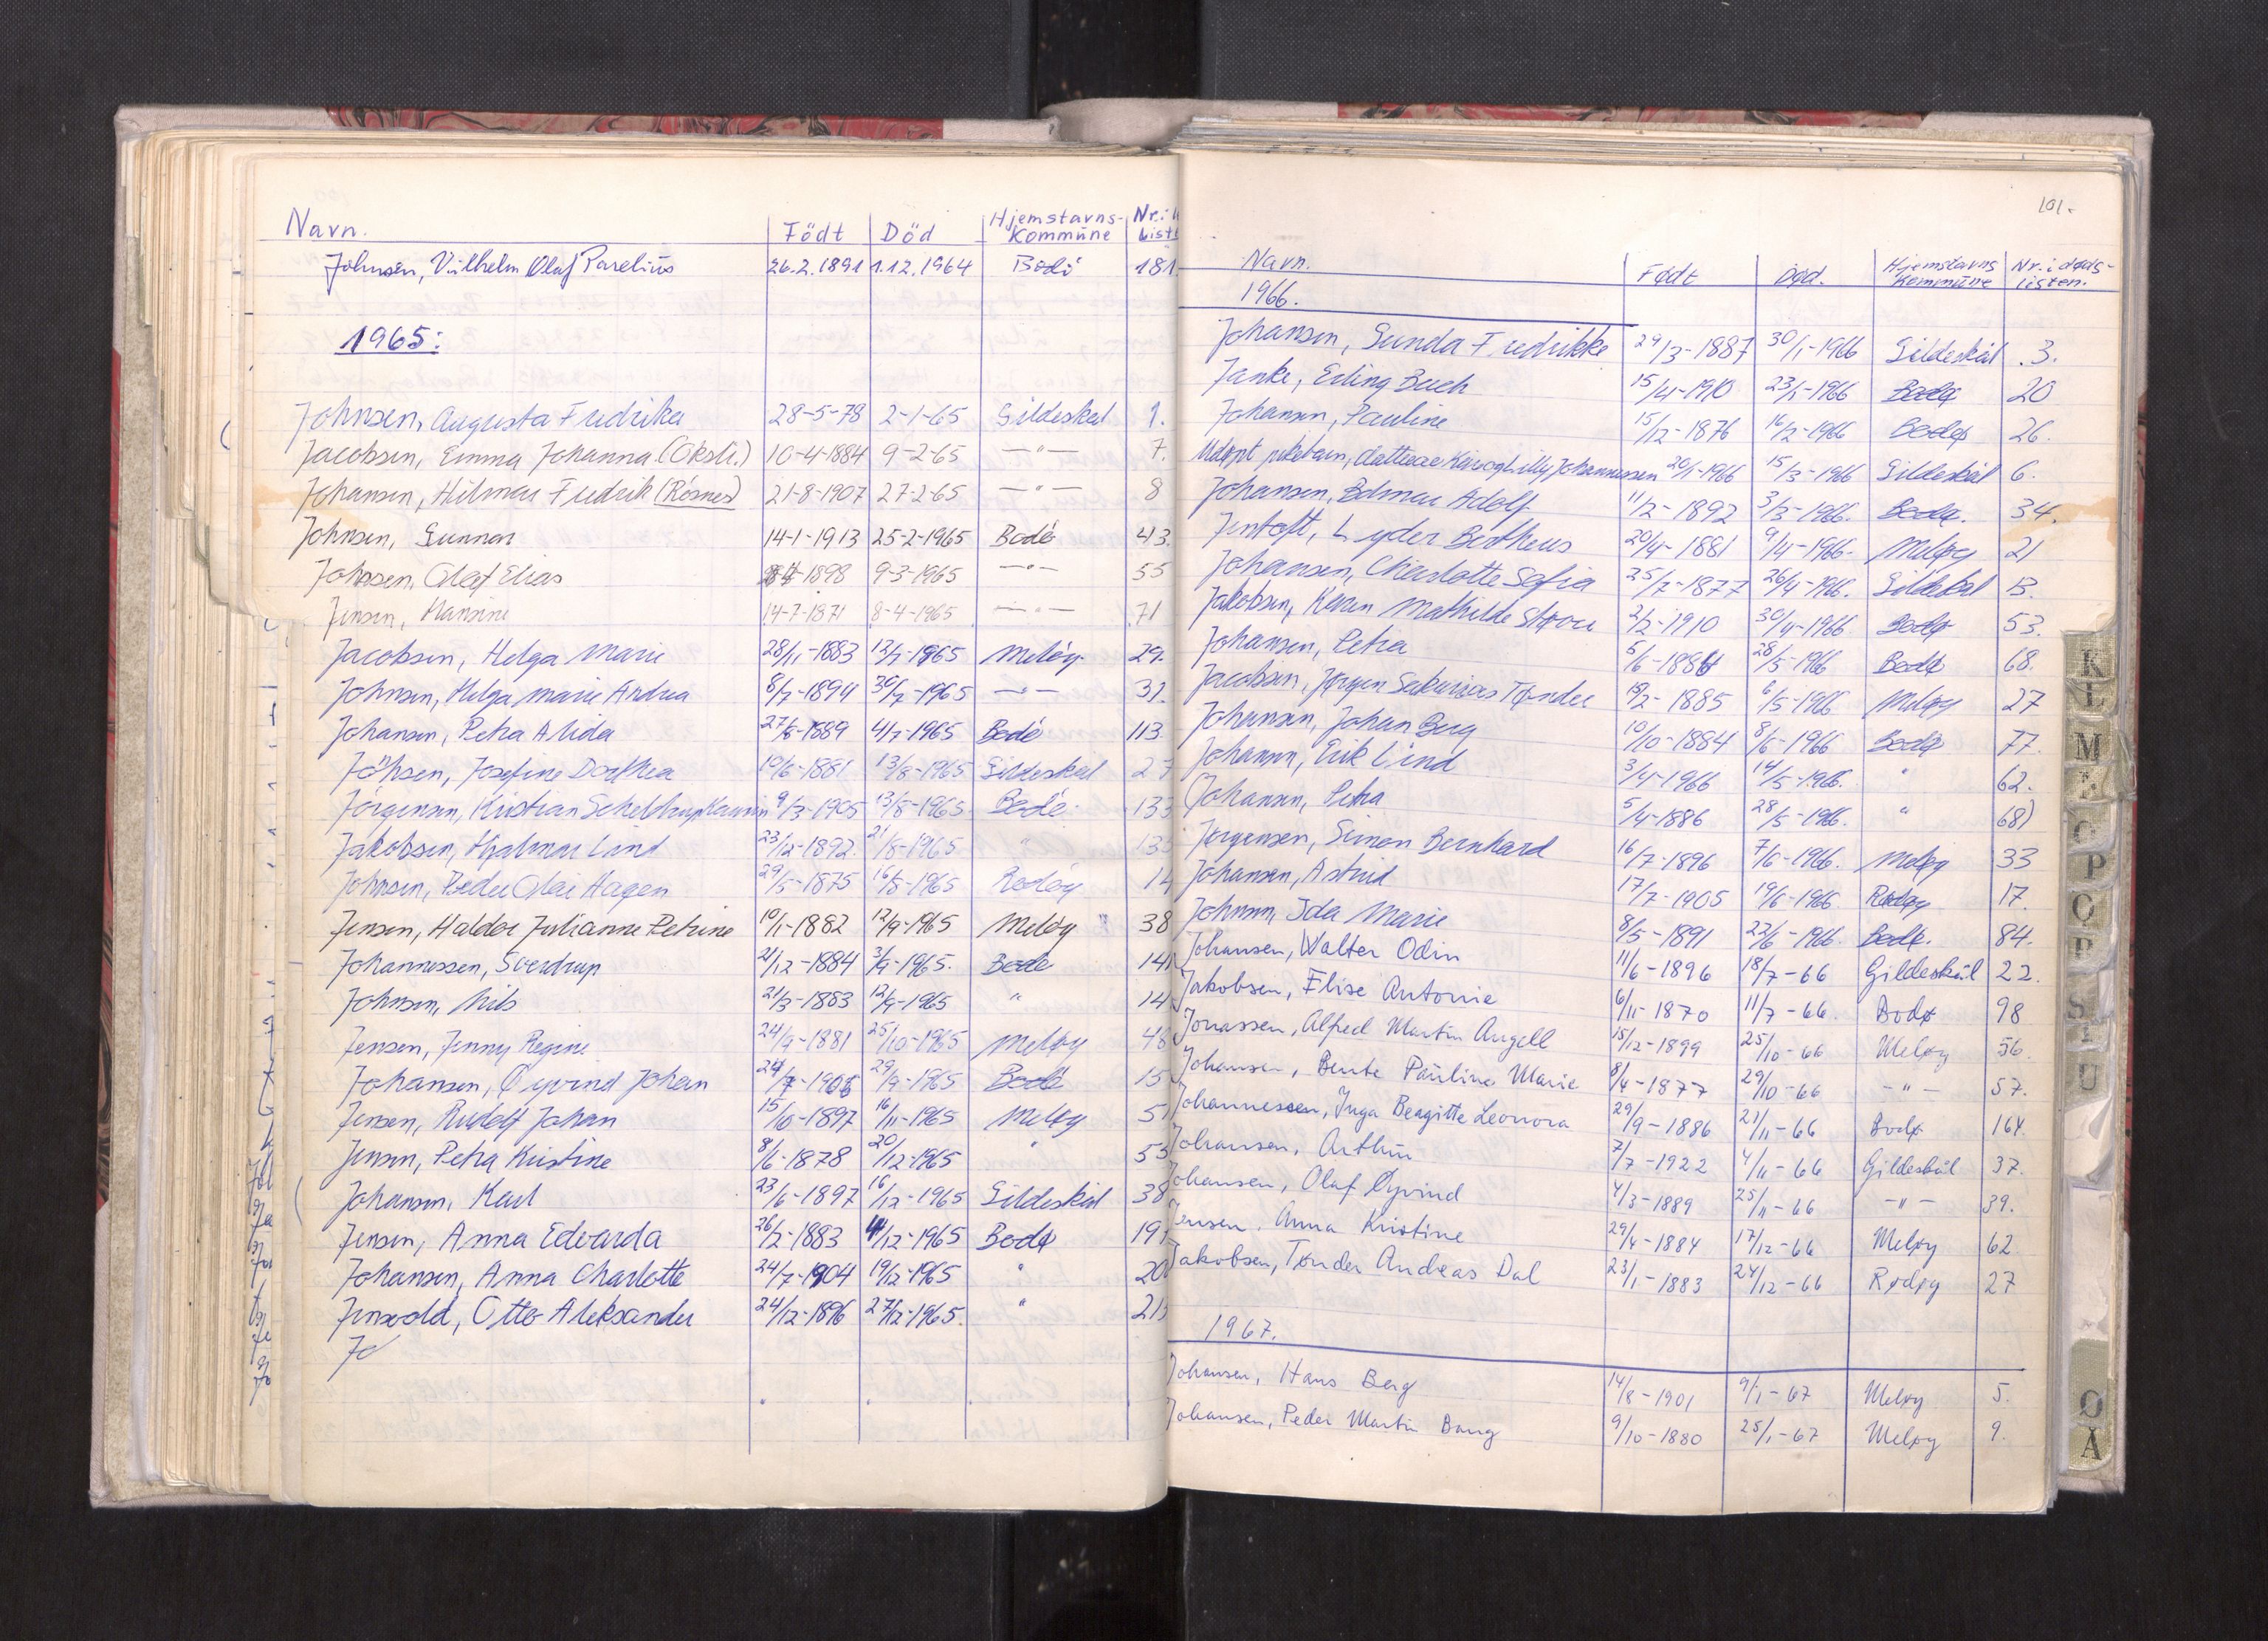 Navn. Födt Död Hjemstavns-Kommüne Nr. i List
Johnsen, Vilhelm Olaf Parelius 26.2.1891 1.12.1964 Bodö 181.
1965:
Johnsen, Augusta Fredrika 28-5-78 2-1-65 Gildeskål 1.
Jacobsen, Emma Johanna 10-4-1884 9-2-65 -"- 7.
Johansen, Hilmar Fredrik (Rösnes) 21-8-1907 27-2-65 -"- 8
Johnsen, Gunnar 14-1-1913 25-2-1965 Bodö 43.
Johnsen, Olaf Elias 1898 9-3-1965 -"- 55
Jensen, Hansine 14-7-1871 8-4-1965 -"- 71
Jacobsen, Helga Marie 28/11-1883 12/7-1965 Melöy 29.
Johnsen, Helga Marie Andrea 8/7-1894 30/7-1965 -"- 31.
Johansen, Petra Alida 27/8-1889 4/7-1965 Bodö 113.
Johsen, Josefine Dorthea 10/6-1881 13/8-1965 Gildeskål 27
Jörgensen, Kristian Schelderup 9/3-1905 13/8-1965 Bodö 133
Jakobsen, Hjalmar Lind 23/12-1892 21/8-1965 " 13
Johnsen, Peder Olai Hagen 29/5-1875 16/8-1965 Rödöy 14
Jensen, Haldor Julianne Petrine 10/1-1882 12/9-1965 Melöy 38
Johannessen, Sverdrup 21/12-1884 3/9-1965. Bodö 14
Johnsen, Nils 21/3-1883 12/9-1965 " 14
Jensen, Jenny Regine 24/9-1881 25/10-1965 Meløy 48
Johansen, Øyvind Johan 29/9-1965 Bodö 15
Jensen, Rudolf Johan 15/10-1897 16/11-1965 Meløy 5
Jensen, Petra Kristine 8/6-1878 20/12-1965 " 53
Johansen, Karl 23/6-1897 16/12-1965 Gildeskål 38
Jensen, Anna Edvarda 26/2-1883 4/12-1965 Bodø 19
Johansen, Anna Charlotte 24/7-1904 19/12-1965 " 20
Jensvold, Otto Aleksander 24/12-1896 27/12-1965. " 21
Jo
101.
Navn. Født Død. Hjemstavns Kommüne Nr. i døds-listen.
1966.
Johansen, Gunda Fredrikke 29/3-1887 30/1-1966 Gildeskål 3.
Janke, Erling Bach 15/4-1910 23/1-1966 Bodø 20
Johansen, Pauline 15/12-1876 16/2-1966 Bodø 26.
Udøpt pikebarn, datter av Kåre og Lilly Johannessen 20/1-1966 15/3-1966 Gildeskål 6.
Johansen, Edmar Adolf 11/2-1892 3/3-1966. Bodø. 34.
Jentoft, Lyder Bertheus 20/4-1881 9/4-1966. Meløy 21
Johansen, Charlotte Sofia 25/7-1877 26/4-1966. Gildeskål 13.
Jakobsen, Karen Mathilde 2/2-1910 30/4-1966. Bodø 53.
Johansen, Petra 5/6-1886 28/5-1966 Bodø 68.
Jacobsen, Jørgen Sakarias Tønder 18/2-1885 6/5-1966 Meløy 27
Johansen, Johan Berg 10/10-1884 8/6-1966 Bodø 77.
Johansen, Erik Lind 3/4-1966 14/5-1966. " 62.
(Johansen, Petra 5/4-1886 28/5-1966. " 68)
Jørgensen, Simon Bernhard 16/7-1896 7/6-1966. Meløy 33
Johansen, Astrid 17/7-1905 19/6-1966. Rødøy 17.
Johnsen, Ida Marie 8/5-1891 22/6-1966. Bodø. 84.
Johansen, Walter Odin 11/6-1896 18/7-66 Gildeskål 22.
Jakobsen, Elise Antonie 6/11-1870 11/7-66. Bodø 98
Jonassen, Alfred Martin Angell 15/12-1899 25/10-66 Meløy 56.
Johansen, Bente Pauline Marie 8/4-1877 29/10-66 -"- 57.
Johannessen, Inga Beagitte Leonora 29/9-1886 21/11-66 Bodø 164.
Johansen, Arthur 7/7-1922 4/11-66 Gildeskål 37.
Johansen, Olaf Øyvind 4/3-1889 25/11-66 -"- 39.
Jensen, Anna Kristine 29/4-1884 17/12-66 Meløy 62.
Jakobsen, Tønder Andreas Dal 23/1-1883 24/12-66 Rødøy 27
1967.
Johansen, Hans Berg 14/8-1901 9/1-67 Meløy 5.
Johansen, Peder Martin Bang 9/10-1880 25/1-67 Meløy 9.
K
L
M
O
P
R
S
U
Ø
Å